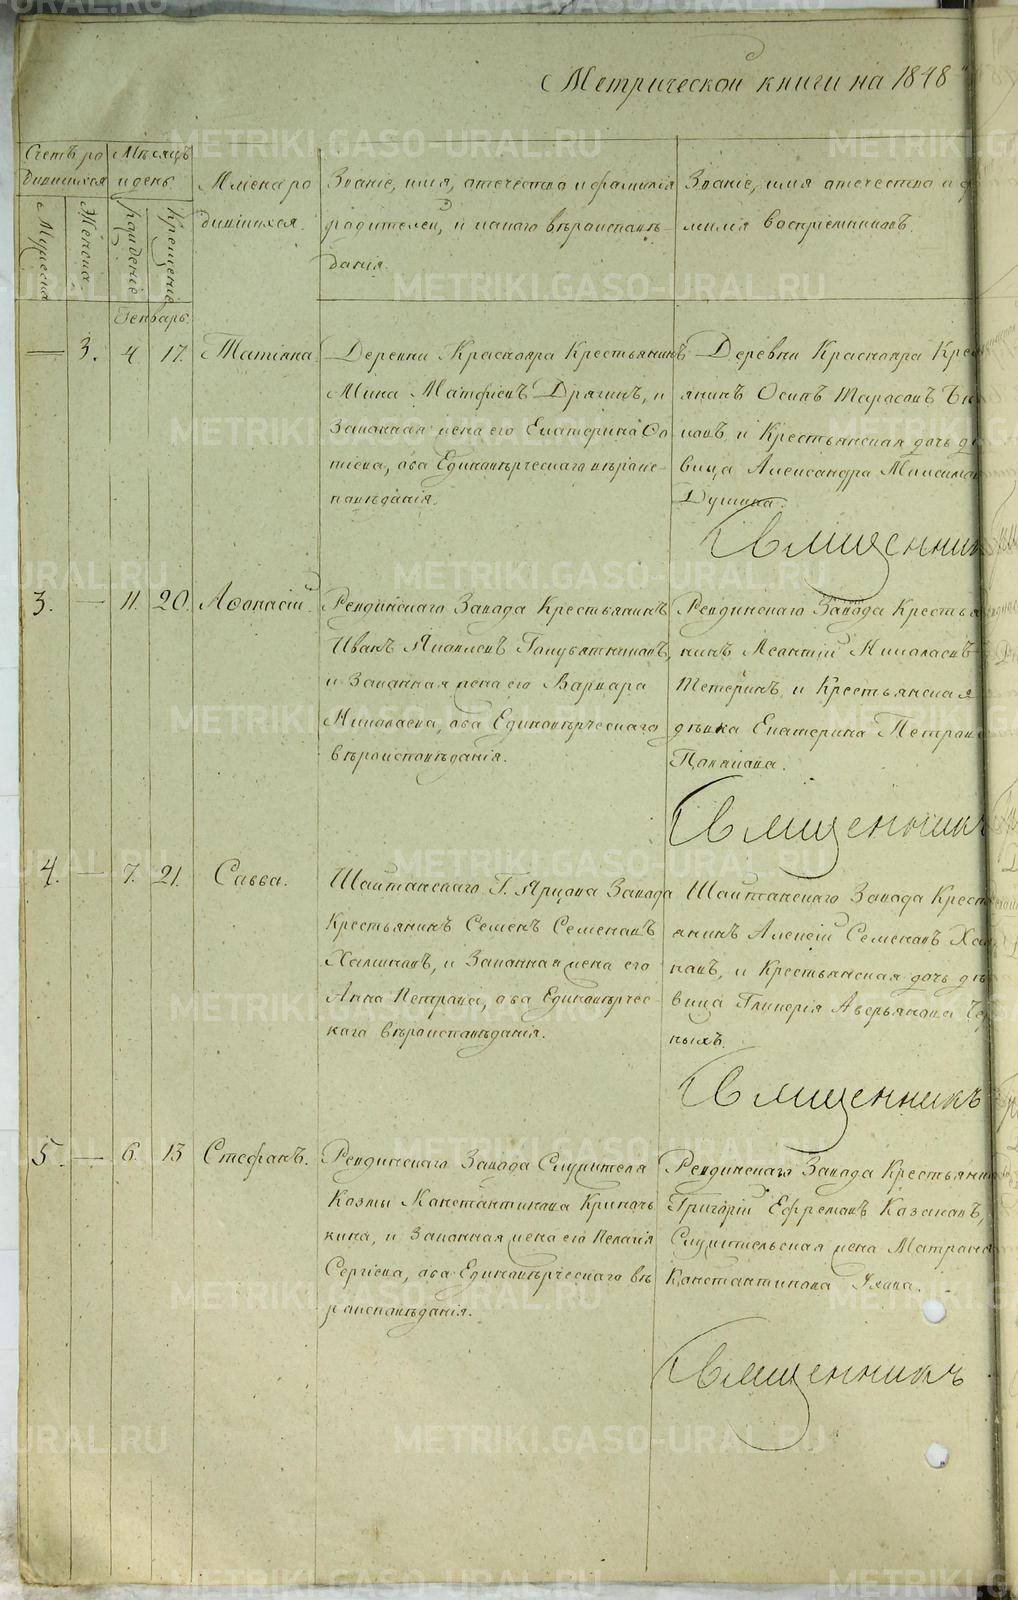 Метрической книги на 1848
Счетъ ро
дившихся
Мѣсяцъ
и день
Имена ро
дившихся.
Званіе, имя, отечество и фамилія
родителей, и какого вѣроисповѣ-
данія.
Званіе, имя отечество и фа
милія Воспріемниковъ.
Мужеска
Женска
рожденіе
Крещеніе
Генварь.
— 3. 4 17. Татіяна
Деревни Краснояра Крестьянинъ
Мина Матфіевъ Дрягинъ, и
Законная жена его Екатерина Фо
тіева, оба Единовѣрческаго вѣроис-
повѣданія.
Деревни Краснояра Крес
янинъ Осипъ Тарасовъ
ковъ и Крестьянская дочь дѣ
вица Александра Максимо
Душина.
Священник
3. — 11. 20. Аѳонасій.
Ревдинскаго Завода Крестьянинъ
Иванъ Яковлевъ Голубятниковъ,
и Законная жена его Варвара
Николаева, оба Единовѣрческаго
вѣроисповѣданія.
Ревдинскаго Завода Крестья
нинъ Леонтій Николаевъ
Тетеринъ, и Крестьянская
дѣвка Екатерина Петрова
Священникъ
4. — 7. 21. Савва.
Шайтанскаго Г. Ярцова Завода
Крестьянинъ Семенъ Семеновъ
и Законная жена его
Анна Петрова, оба Единовѣрчес-
каго вѣроисповѣданія.
Шайтанскаго Завода Крест
янинъ Алексій Семеновъ
ковъ, и Крестьянская дочь дѣ
вица Гликерія Аверьянова Чер
ныхъ.
Священникъ
5. — 6. 13 Стефанъ.
Ревдинскаго Завода Служителя
Козмы Константинова Кривочь
кина, и Законная жена его Пелагія
Сергіева, оба Единовѣрческаго вѣ
роисповѣданія.
Ревдинскаго Завода Крестьянин
Григорій Ефремовъ Казаковъ,
Служительская жена Матрона
Константинова
Священникъ
METRIKI.GASO-URAL.RU